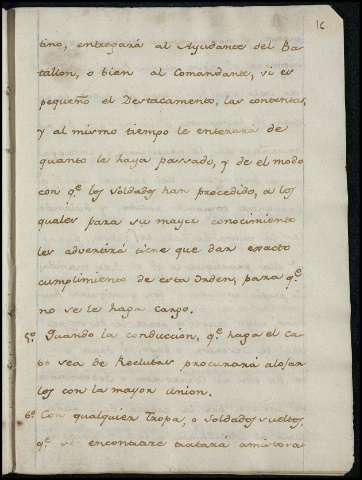 16
tino, entregará al Ayudante del Ba-
tallon, o bien al Comandante, si es
pequeño el Destacamento, las contentas,
y al mismo tiempo le enterará de
quanto le haya passado, y de el modo
con q.e los soldados han procedido, a los
quales para su mayor conocimiento
les advertirá tiene que dar exacto
cumplimiento de esta orden, para q.e
no se le haga cargo.
5.o Quando la conduccion, q.e haga el Ca-
bo sea de Reclutas procurará alojar
los con la mayor union.
6.o Con qualquier Tropa, o soldados sueltos,
q.e se encontrare tratará amistosa